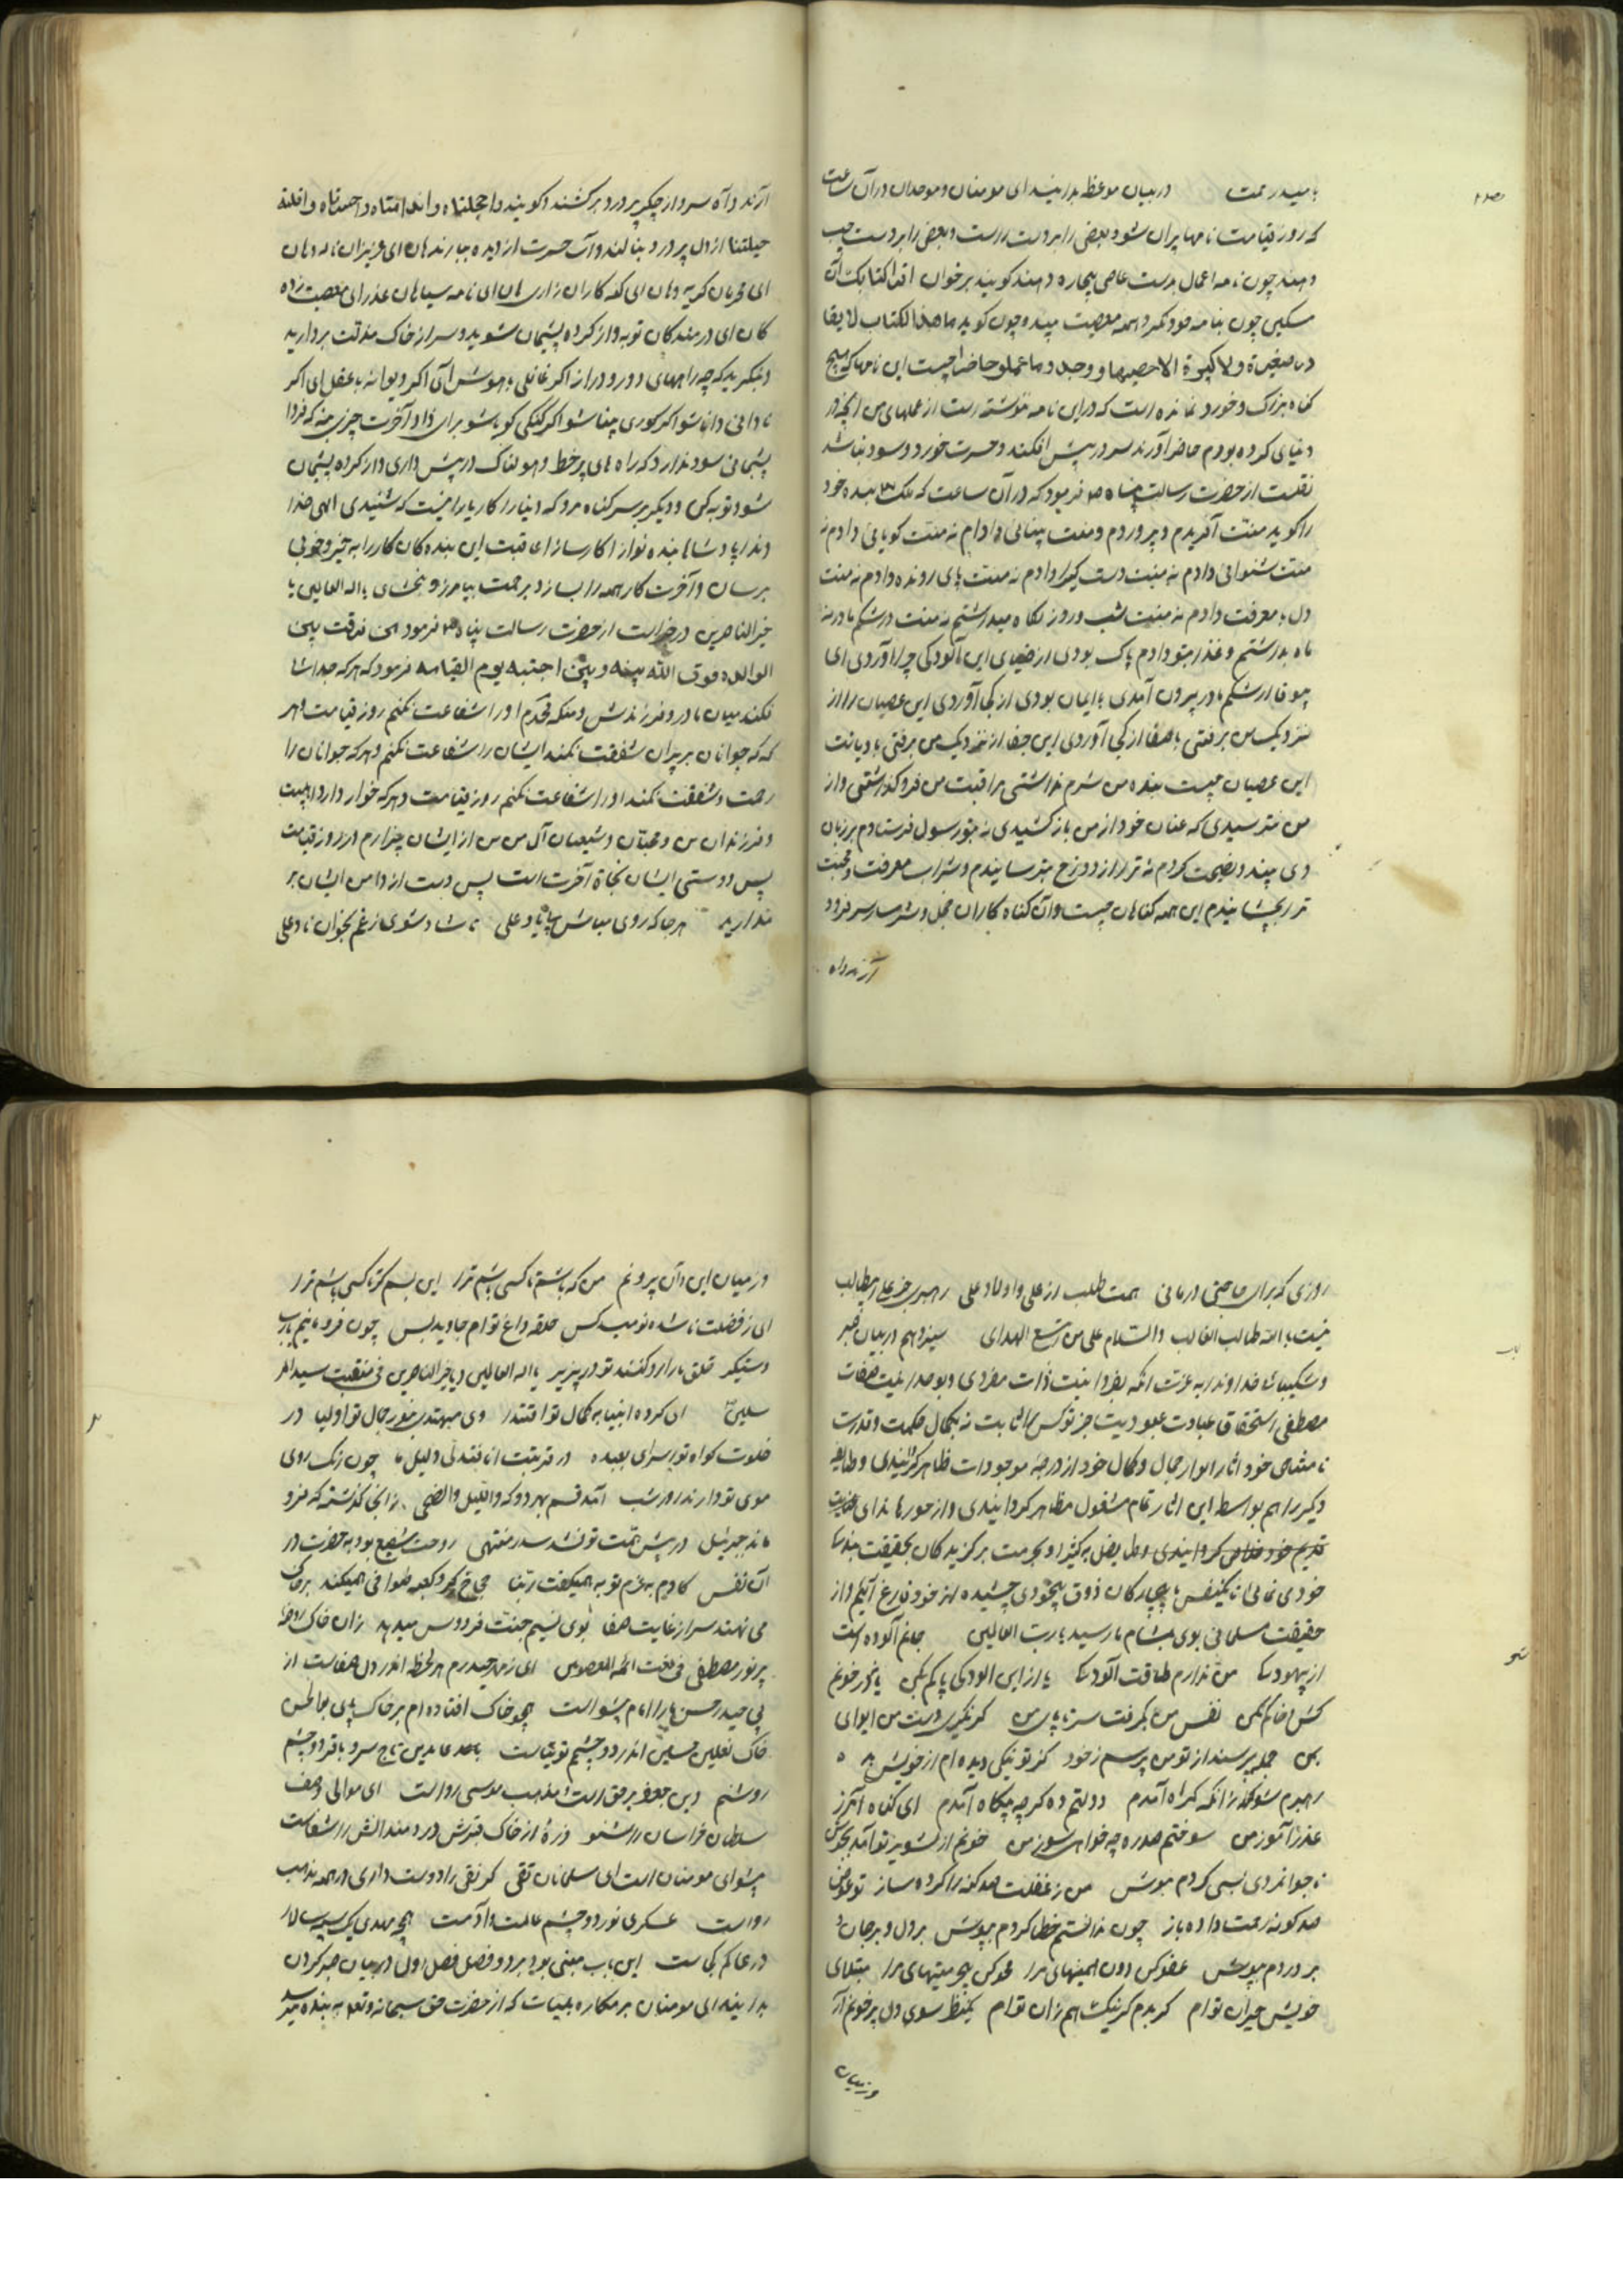 بامید رحمت در بیان موعظ بدانید ای مومنان و موحدان در آن ساعت
که روز قیامت نامها پران شود بعضی را بردست راست و بعضی را بردست چپ
دهند چون نامه اعمال بدست عاصی بیچاره دهند کویند برخوان اقرا کتابک آن
مسکین چون بنامه خود نکرد همه معصیت بیند چون کوید ما هذا الکتاب لا یغا
در صغیرة ولا کبیرة الا احصیها و وجدو ما عملو حاضرا چیست این نامها که هیچ
کناه بزرک و خورد نمانده است که در این نامه ننوشته است از عملهای من انچه در
دنیای کرده بودم حاضر آورند سر در پیش افکند و حسرت خورد و سود نباشد
نقلست از حضرت رسالت پناه ص فرمود که در آن ساعت که ملک بنده خود
را کوید منتت آفریدم و پروردم و منت بینائی دادم نه منتت کویائی دادم نه
منتت شنوائی دادم نه منتت دست کیرا دادم نه منتت پای رونده دادم نه منتت
دل با معرفت دادم نه منتت شب و روز نکاه میداشتم نه منتت در شکم مادر نه
ماه بداشتم و غذا بتو دادم پاک بودی از ضیعای این آلودکی چرا آوردی ای
بیوفا از شکم مادر بیرون آمدی با ایمان بودی از کجا آوردی این عصیان را از
نزدیک من برفتی با صفا از کجا آوردی این جفا از نزدیک من برفتی با دیانت
این عصیان چیست بنده من شرم نداشتی مراقبت من فرو کذاشتی و از
من نترسیدی که عنان خود از من باز کشیدی نه بتو رسول فرستادم بر زبان
وی پند و نصیحت کردم نه ترا از دوزخ بترسانیدم و شراب معرفت و محبت
ترا بچشانیدم این همه کناهان چیست و آن کناه کاران خجل و شرمسار سر فرود
آرند و آه
آرند و آه سرد از جکر پر درد برکشند و کویند واخجلتاه واندامتاه واحسرتاه واقلة
حیلتنا از دل پر درد بنالند و آب حسرت از دیده ببارند هان ای عزیزان ناله و هان
ای محرمان کریه و هان ای کنه کاران زاری هان ای نامه سیاهان عذر ای معصیت زده
کان ای درمندکان توبه و از کرده پشیمان شوید و سر از خاک مذلت بردارید
و بنکرید که چه راههای دور و دراز اکر غافلی باهوش آی اکر دیوانه باعقل ای اکر
نادانی دانا شو اکر کوری بینا شو اکر کنکی کویا شو برای زاد آخرت چیزی بنه که فردا
پشیمانی سود ندارد که راه های پر خطر و هولناک در پیش داری و از کرده پشیمان
شو و توبه کن و دیکر بر سر کناه مرو که دنیا را کار یا بر اینست که شنیدی الهی خدا
وندا پادشاها بنده نوازا کار سازا عاقبت این بنده کان کار را به خیر و خوبی
برسان و آخرت کار همه را بساز و برحمت بیامرز و ببخشای یا اله العالمین یا
خیر الناصرین در خبراست از حضرت رسالت پناه ص فرمود من فرقت بین
الوالده فرق الله بینه و بین احبته یوم القیامه فرمود که هر که جدائی
نکند میان مادر و فرزندش و منکه محمدم او را شفاعت نکنم روز قیامت و هر
که که جوانان بر پیران شفقت نکند ایشان را شفاعت نکنم و هر که جوانان را
رحمت و شفقت نکند او را شفاعت نکنم روز قیامت و هر که خوار دارد اهلبیت
و فرزندان من و محبان و شیعیان آل من من از ایشان بیزارم در روز قیامت
پس دوستی ایشان نجاة آخرت است پس دست از دامن ایشان بر
ندارید هر جا که روی مباش بی یاد علی تا شاد شوی ز غم بخوان ناد علی
روزی که برای حاجتی درمانی همت طلب از علی و اولاد علی رهبری جز علی مطالب
نیست یا الله طالب الغالب والسلام علی من اتبع الهدای سیزدهم در بیان صبر
و شکیبائی خداوندا به عزت انکه بفردانیت ذات منفردی و بوحدانیت صفات
مصطفی استحقاق عبادت عبودیت جز تو کس را ثابت نه بکمال حکمت و قدرت
تا مشتاقی خود اثار انوار جمال و کمال خود از درجهٔ موجودات ظاهر کردانیدی و طایفه
دیکر را هم بواسط این اثار تمام مشغول مظاهر کردانیدی و از
قدیم خود کردانیدی و طایفه
خودی نمائی تا یکنفس ما بیچارکان ذوق بیخودی چشیده از خود فارغ آئیم و از
حقیقت مسلمانی بوی بمشام ما رسید یا رب العالمین جانم آلوده است
از بیهودکی من ندارم طاقت آلودکی یا از این الودکی پاکم بکن یا نه در خونم
کش و خاکم بکن نفس من بکرفت سرتاپای من کر نکیری دست من ای وای
من جمله پرسند از تو من پرسم ز خود کز تو نیکی دیده ام از خویش بد
رهبرم شو زانکه کمراه آمدم دولتم ده کرچه بیکاه آمدم ای کناه آمرز
عذر آموز من سوختم صد ره چه خواهی سوز من خونم از تشویر تو آمد بجوش
ناجوانمردی بسی کردم بپوش من ز غفلت صد کنه را کرده ساز تو عوض
صد کونه رحمت داده باز چون ندانستم خطا کردم بپوش بر دل و بر جان و
بر دردم بپوش عفو کن دون همتیهای مرا محو کن بیحرمتیهای مرا مبتلای
خویش حیران توام کر بدم کر نیک هم زان توام یکنظر سوی دل پر خونم آر
وز میان
وز میان این و آن بیرونم من که باشم تا کسی باشم ترا این بسم کر ناکسی باشم ترا
ای ز فضلت ناشده نومید کس حلقه داغ توام جاوید بس چون فرو مانیم یارب
دستیکر خلق ما را رد کنند تو در پذیر یا اله العالمین و یا خیر الناصرین فی منقبت سید المر
سلین ای کرده انبیا به کمال تو اقتدا وی مهتدی بنور جمال تو اولیا در
خلوت کواه تو اسرای بعبده در قربتت انا فتدلی دلیل ما چون رنک روی
موی تو دارند روز شب آمد قسم بهر دو که واللیل والضحی زانجا کذشته که فرو
ماند جبرئیل در پیش همت تو نشد سدر منتهی روحت شفیع بود به حضرت در
آن نفس کادم به عزم توبه همیکفت ربنا حجاج کرد کعبه طوافی همیکند بر خاک
می نهند سر از غایت صفا بوی نسیم جنت فردوس میدهد زان خاک روضهٔ
پر نور مصطفی فی نعت ائمه المعصومین ای ز مهر حیدرم هر لحظ اندر دل صفاست از
پی حیدر حسن ما را امام پیشواست همچو خاک افتاده ام بر خاک پای بوالحسن
خاک نعلین حسین اندر دو چشمم توتیاست بعد عابدین تاج سر و باقر دو چشم
روشنم دین جعفر برحق است و مذهب موسی رواست ای موالی وصف
سلطان خراسان را شنو ذرهٔ از خاک قبرش دردمندانش را شفاست
پیشوای مومنان است ای مسلمانان تقی کر نقی را دوست داری در همه مذهب
رواست عسکری نور دو چشم عالمست و آدمست همچو مهدی یک سپه سالار
در عالم کجاست این باب مبنی بود بر دو فصل فصل اول در بیان صبر کردن
بدانید ای مومنان بر مکاره بلیات که از حضرت حق سبحانه و تعالی به بنده میرسد